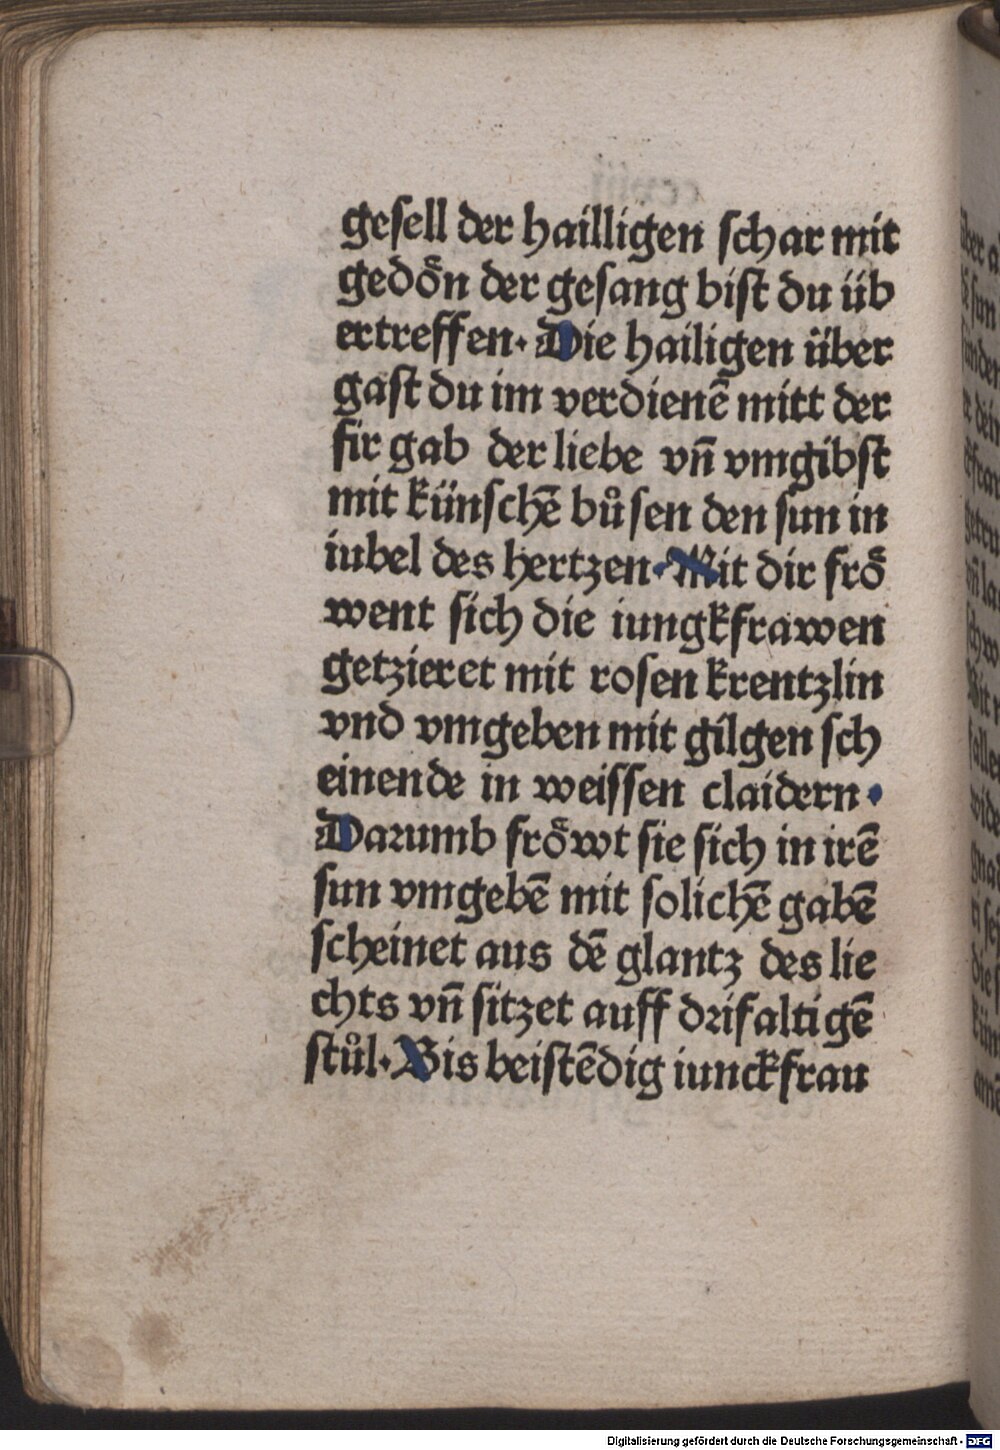 gesell der hailligen schar mit
gedoͤn der gesang bist du üb
ertreffen· Die hailigen über
gast du im verdienē mitt der
fir gab der liebe vn̄ vmgibst
mit künschē bůsen den sun in
iubel des hertzen· Mit dir froͤ
went sich die iungkfrawen
getzieret mit rosen krentzlin
vnd vmgeben mit gilgen sch
einende in weissen claidern·
Darumb froͤwt sie sich in irē
sun vmgebē mit solichē gabē
scheinet aus dē glantz des lie
chts vn̄ sitzet auff drifaltigē
stůl· Bis beistēdig iunckfrau
Digitalisierung gefördert durch die Deutsche Forschungsgemeinschaft - DFG